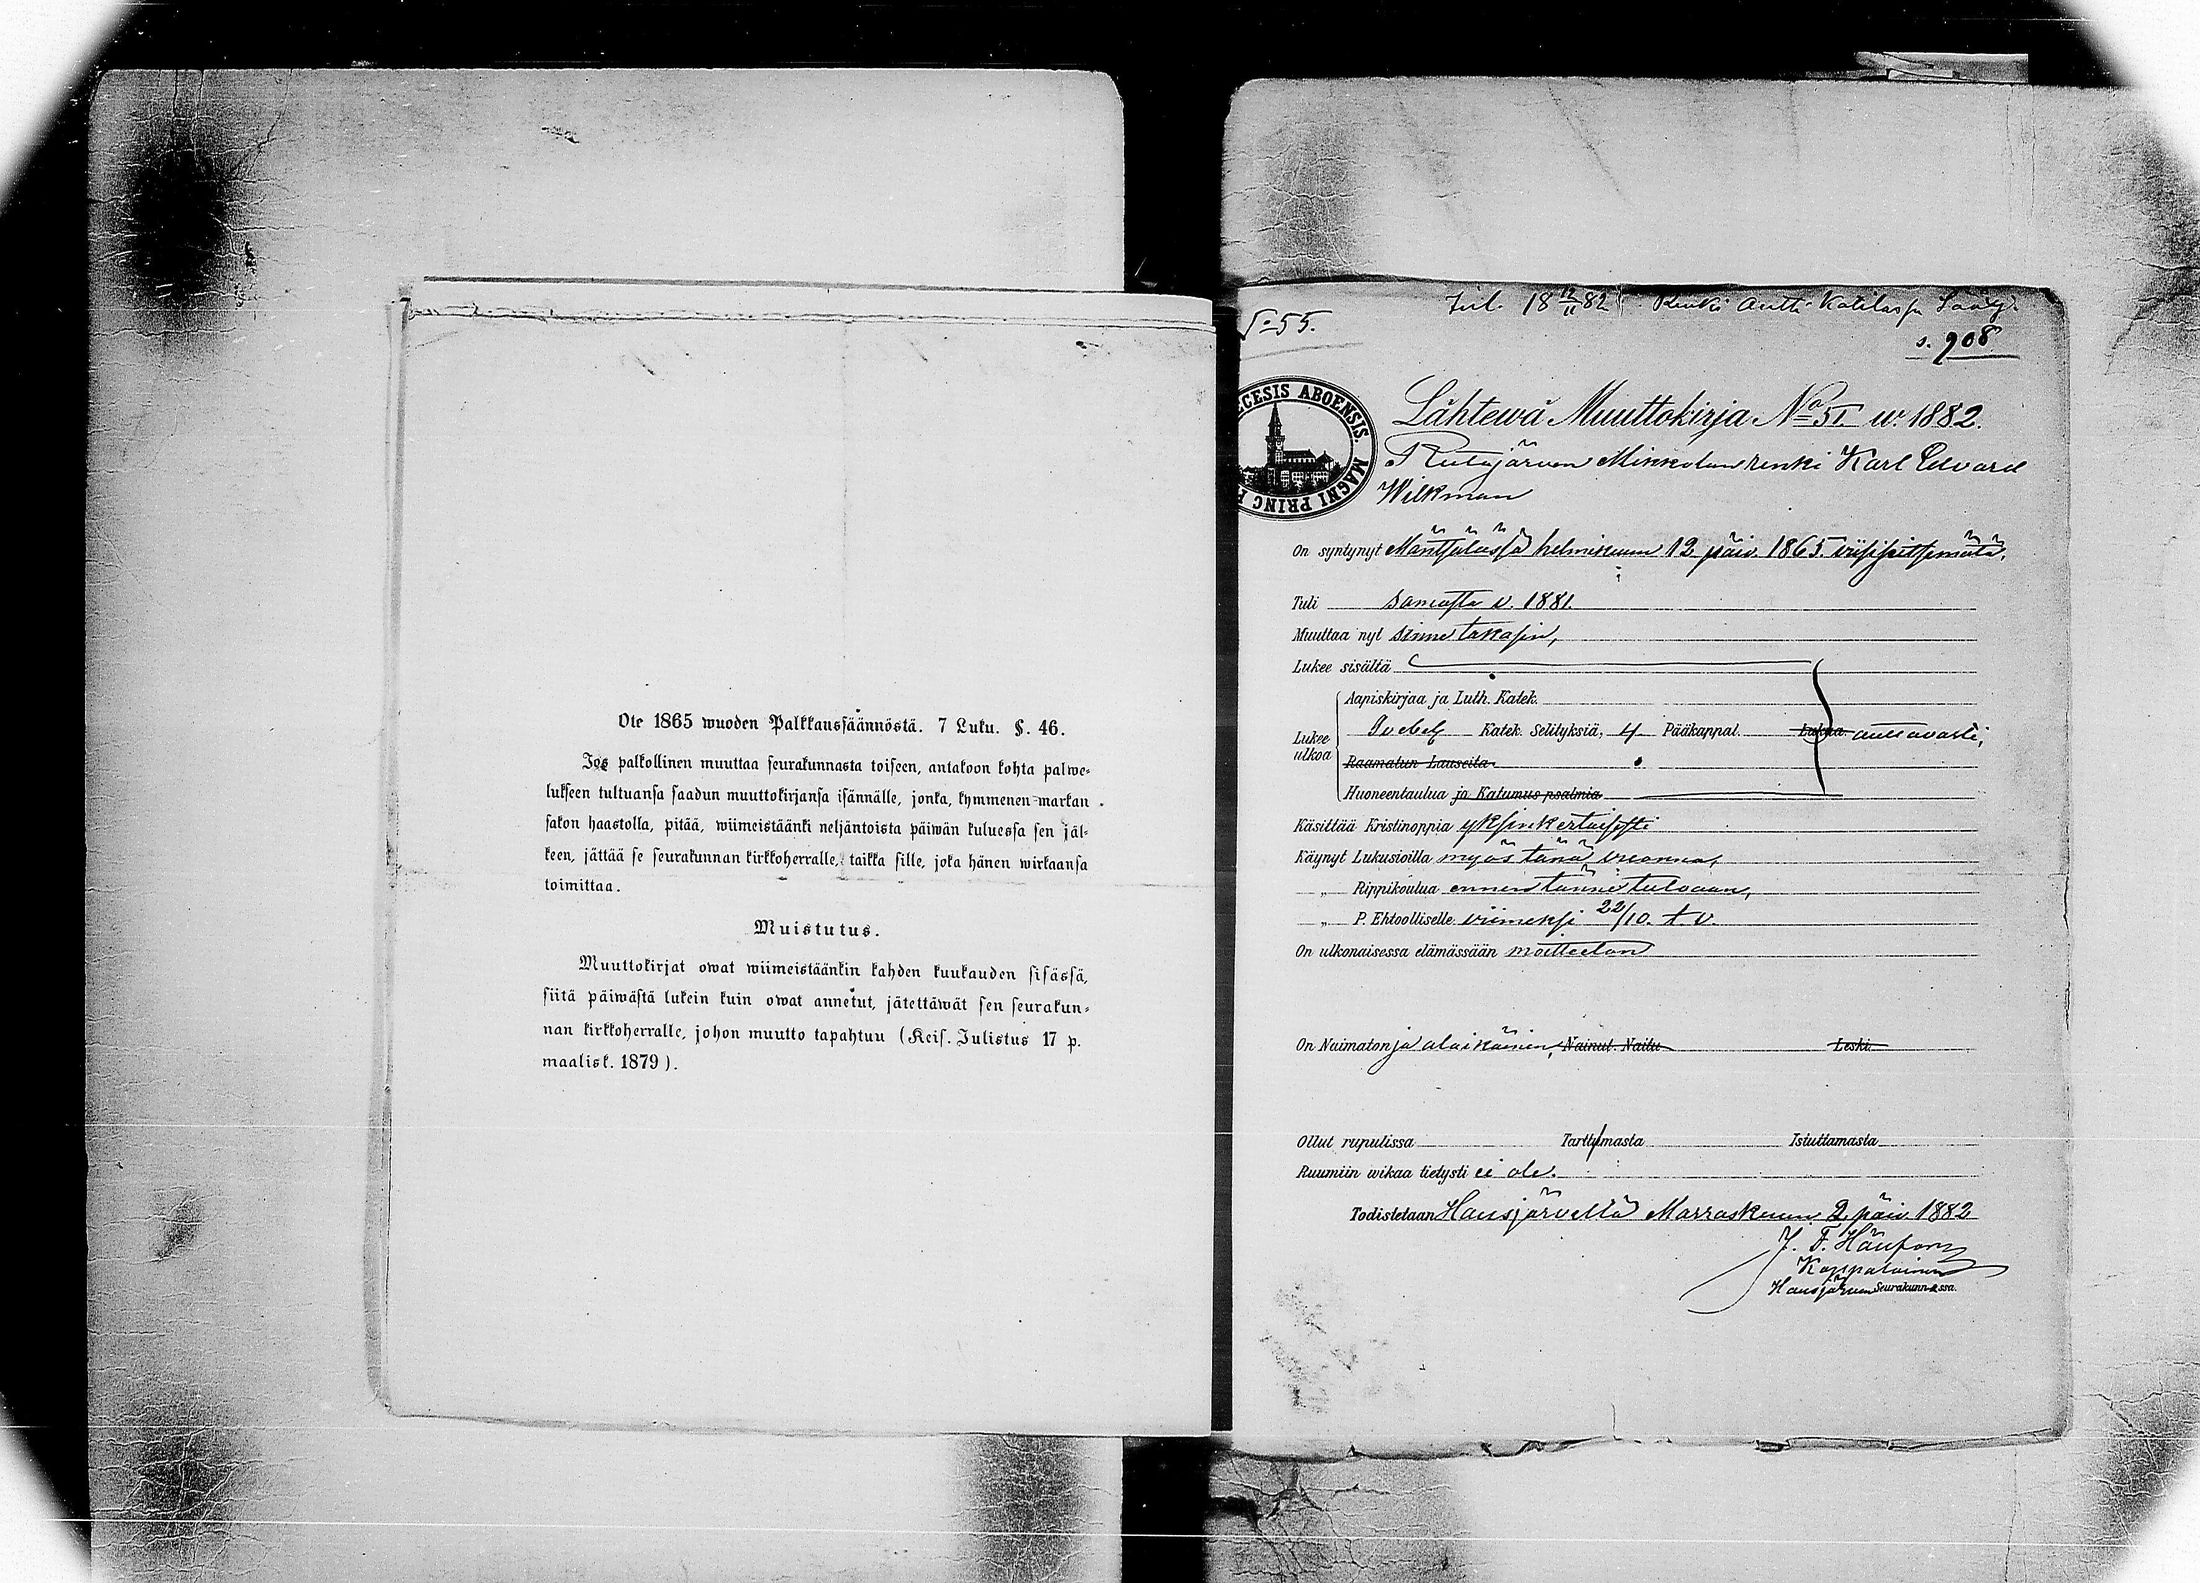 Ote 1865 wuoden Palkkaussäännöstä. 7 Luku. §. 46.
Jos palkollinen muuttaa seurakunnasta toiseen, antakoon kohta palwe-
lukseen tultuansa saadun muuttokirjansa isännälle, jonka, kymmenen markan
sakon haastolla, pitää, wiimeistäänki neljäntoista päiwän kuluessa sen jäl-
keen, jättää se seurakunnan kirkkoherralle, taikka sille, joka hänen wirkaansa
toimittaa.
Muistutus.
Muuttokirjat owat wiimeistäänkin kahden kuukauden sisässä,
siitä päiwästä lukein kuin owat annetut, jätettäwät sen seurakun-
nan kirkkoherralle, johon muutto tapahtuu (Keis. Julistus 17 p.
maalisk. 1879).
№ 55.
18 12/11 82 Renki Antti
s. 908
CESIS ABOENSIS. MAGNI PRINC
Lähtewä Muuttokirja No 51. w. 1882.
Mikkolan renki Karl Edvard
Wilkman
On syntynyt Mäntsälässä helmikuun 12 päiv. 1865.
Tuli samasta v. 1881.
Muuttaa nyt sinne takasin,
Lukee sisältä
Lukee ulkoa
Aapiskirjaa ja Luth. Katek.
Svebel. Katek. Selityksiä, 4. Pääkappal. Lukua auttavasti,
Raamatun Lauseita
Huoneentaulua ja Katumus psalmia
Käsittää Kristinoppia yksinkertaisesti
Käynyt Lukusioilla myös tänä vuonna,
„ Rippikoulua ennen tänne tuloaan,
„ P. Ehtoolliselle viimeksi 22/10. t. v.
On ulkonaisessa elämässään moitteeton
On Naimaton ja alaikäinen, Nainut Nailu Leski
Ollut rupulissa Tarttumasta Istuttamasta
Ruumiin wikaa tietysti ei ole.
Todistetaan Hausjärvellä Marraskuun 2 päiv. 1882
J. F.
Kappalainen
Hausjärven Seurakunnassa.